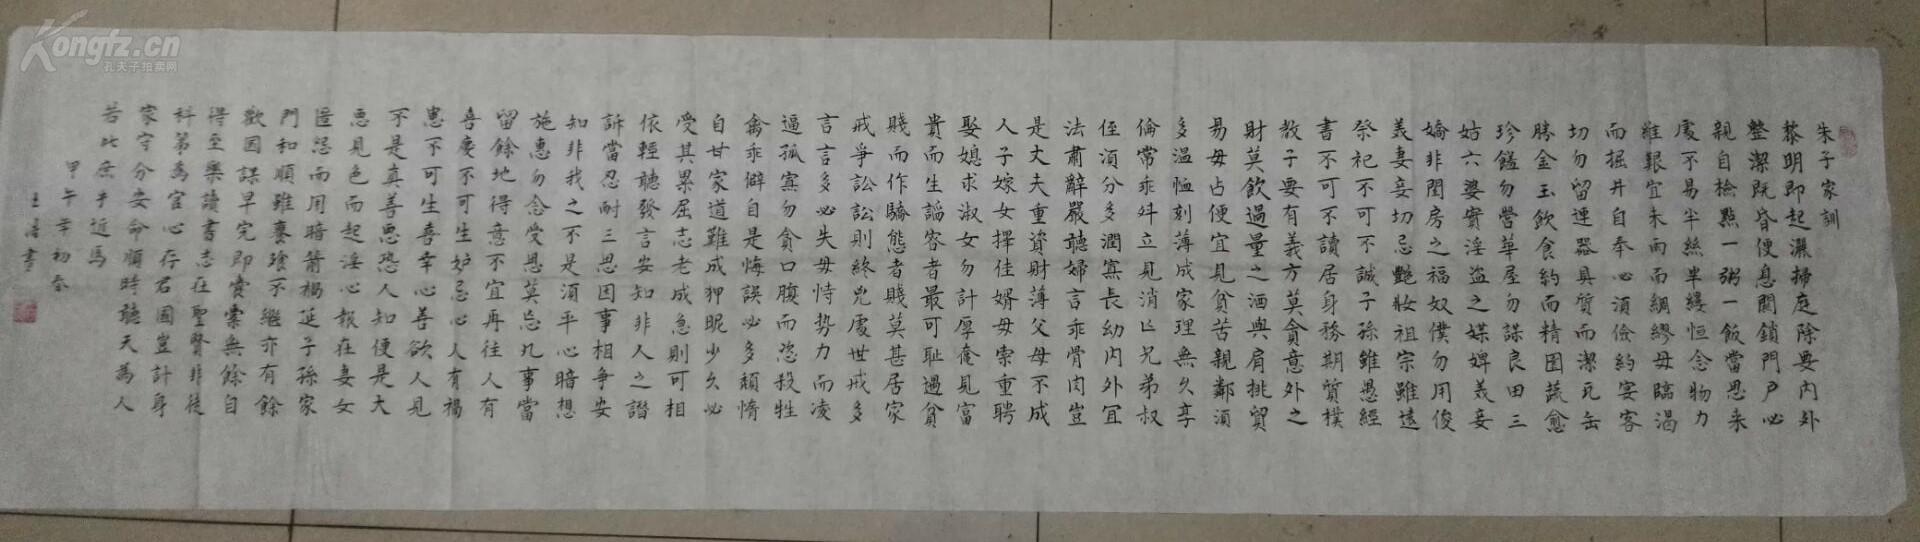 Kongfz.cn
孔夫子拍卖网
朱子家訓
黎明即起灑掃庭除要内外
整潔既昏便息關鎖門戶必
親自檢點一粥一飯當思来
處不易半絲半縷恒念物力
維艱宜未雨而綢繆毋臨渴
而掘井自奉必須儉約宴客
切勿留連器具質而潔瓦缶
勝金玉飲食約而精園蔬愈
珍饈勿營華屋勿謀良田三
姑六婆實淫盜之媒婢美妾
嬌非閨房之福奴僕勿用俊
美妻妾切忌艷妝祖宗雖遠
祭祀不可不誠子孫雖愚經
書不可不讀居身務期質樸
教子要有義方莫貪意外之
財莫飲過量之酒與肩挑貿
易毋占便宜見貧苦親鄰須
多溫恤刻薄成家理無久享
倫常乖舛立見消亡兄弟叔
侄須分多潤寡長幼内外宜
法肅辭嚴聽婦言乖骨肉豈
是丈夫重資財薄父母不成
人子嫁女擇佳婿毋索重聘
娶媳求淑女勿計厚奩見富
貴而生謟容者最可恥遇貧
賤而作驕態者賤莫甚居家
戒爭訟訟則終兇處世戒多
言言多必失毋恃势力而凌
逼孤寡勿貪口腹而恣殺牲
禽乖僻自是悔誤必多頹惰
自甘家道難成狎昵少久必
受其累屈志老成急則可相
依輕聽發言安知非人之譖
訴當忍耐三思因事相爭安
知非我之不是須平心暗想
施惠勿念受恩莫忘凡事當
留餘地得意不宜再往人有
喜慶不可生妒忌心人有禍
患不可生喜幸心善欲人見
不是真善惡恐人知便是大
惡見色而起淫心報在妻女
匿怨而用暗箭禍延子孫家
門和順雖饔飧不繼亦有餘
歡國課早完即囊橐無餘自
得至樂讀書志在聖賢非徒
科第為官心存君國豈計身
家守分安命順時聽天為人
若此庶乎近焉
甲午年初春
王
書